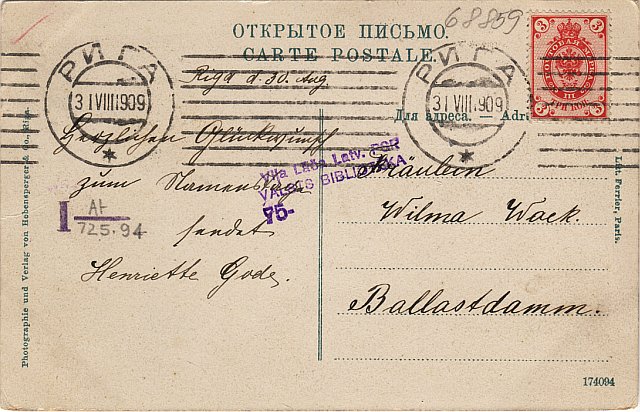 68859
ОТКРЫТОЕ ПИСЬМО.
CARTE POSTALE.
РИГА
31 VIII.909
РИГА
31 VIII.909
3 3
3 3
Riga d. 30. Aug
Для адреса. — Adr
Herzlichen Glückwunsch
zum Namenstage
sendet
Henriette Gode.
Viļa Lāča Latv. PSR
VALSTS BIBLIOTĒKA
75-
I AF
725-94
Fräulein
Wilma Waek.
Ballastdamm.
Photographie und Verlag von Hebensperger & Co., Riga.
Lut. Ferrier, Paris.
174094